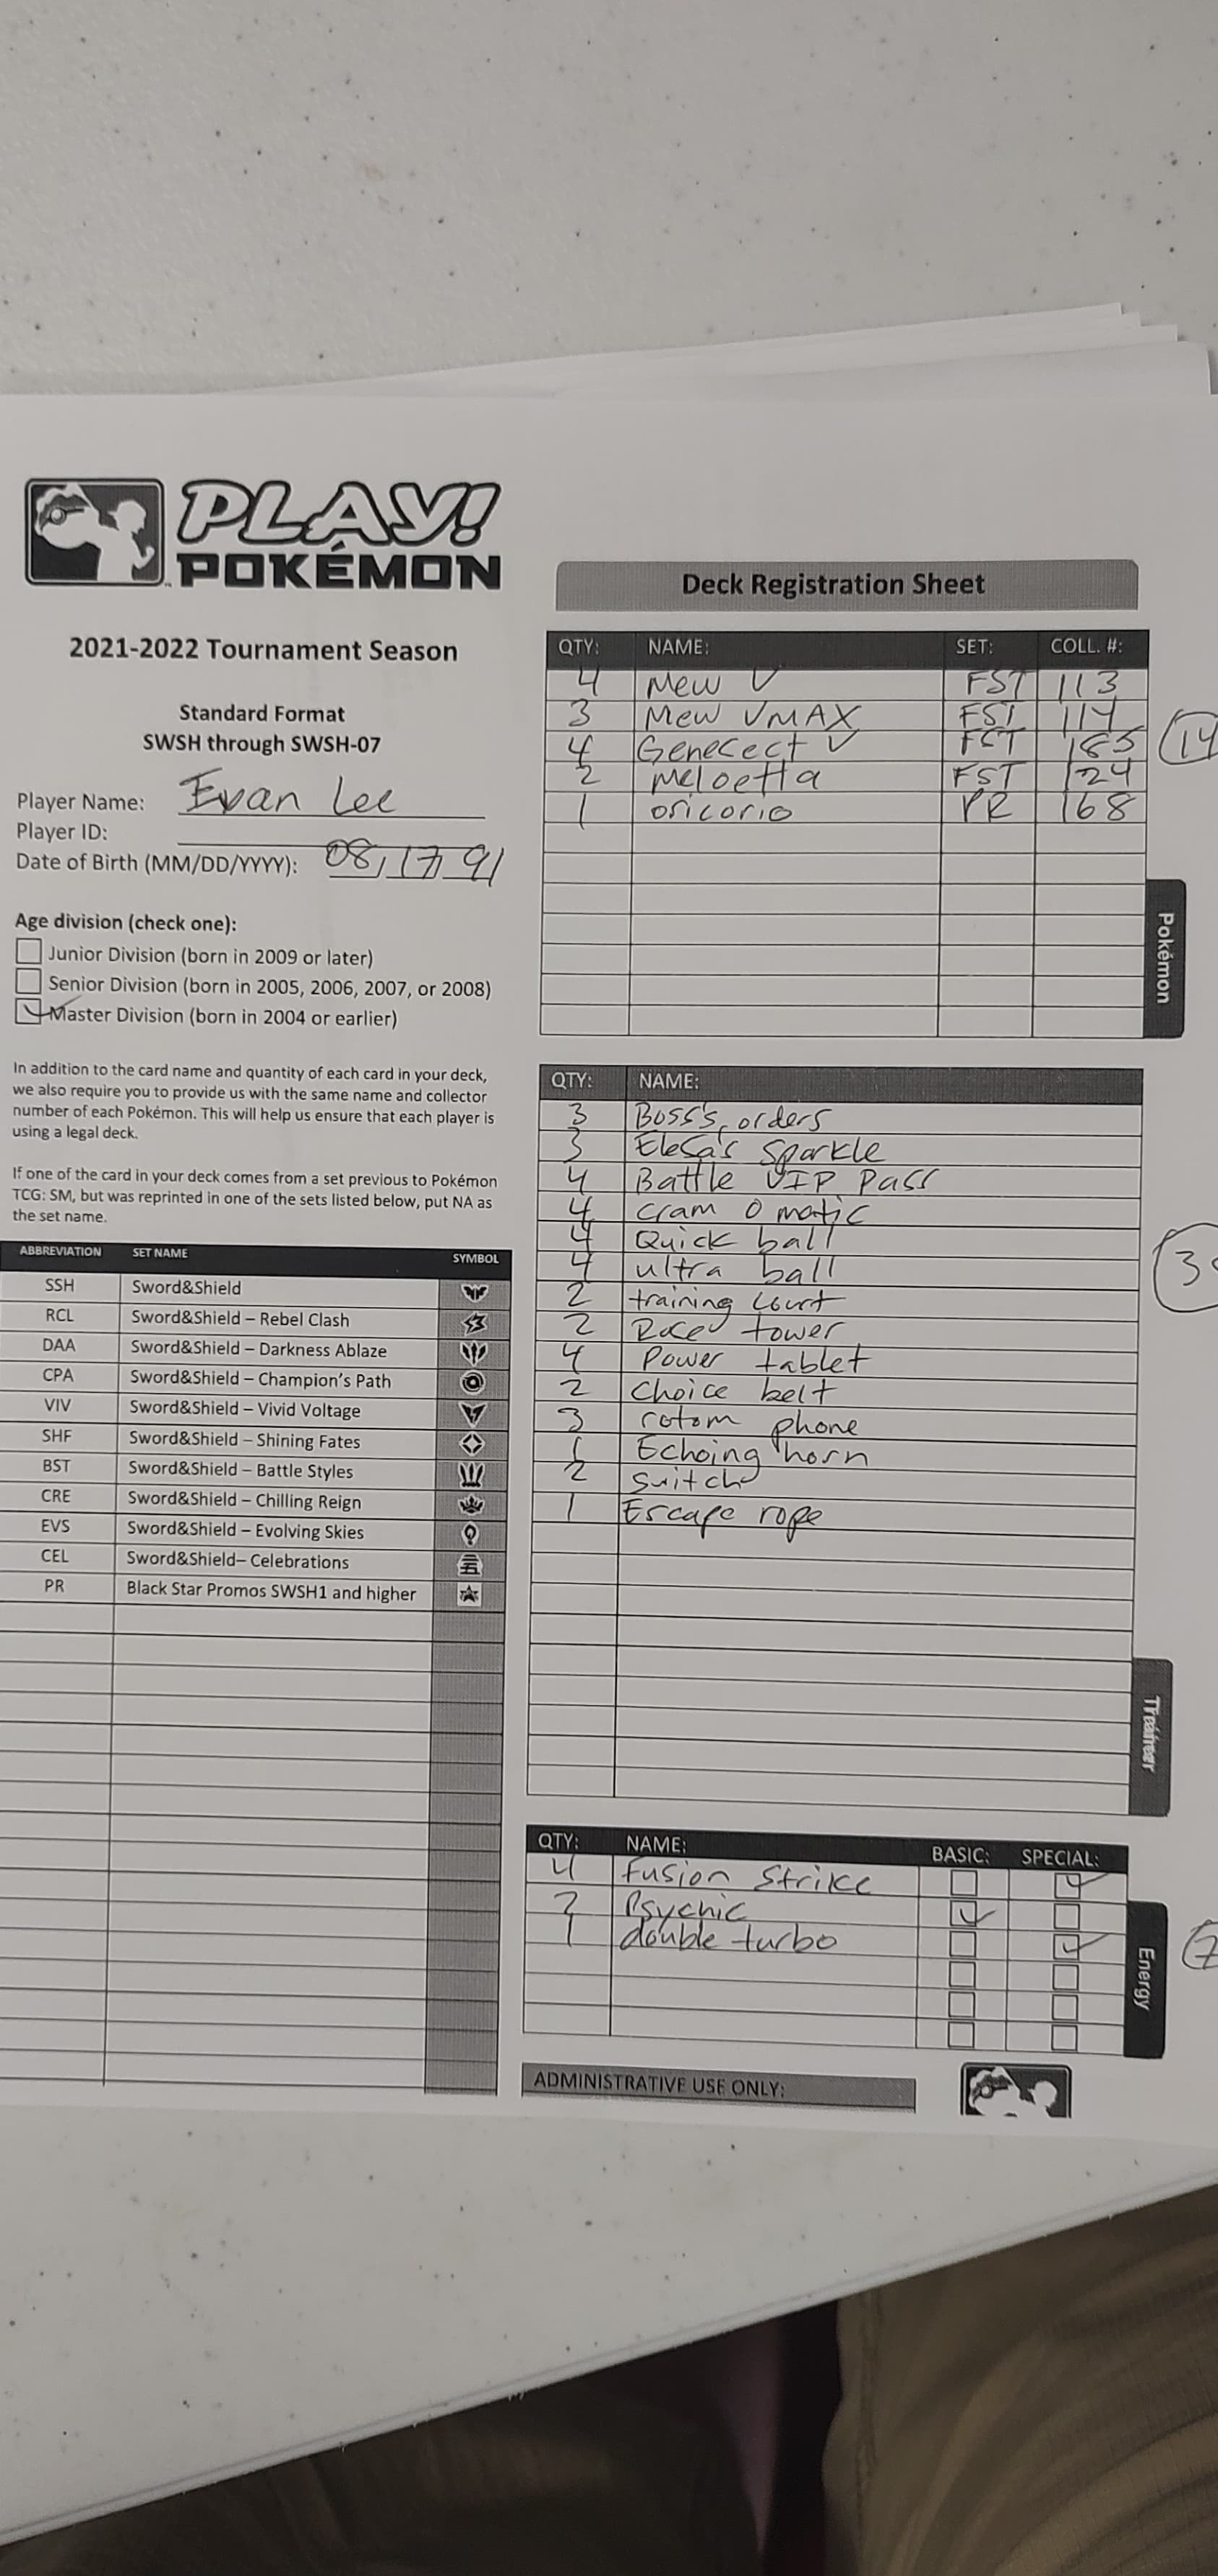 PLAY!
POKÉMON
2021-2022 Tournament Season
Standard Format
SWSH through SWSH-07
Player Name: Evan Lee
Player ID:
Date of Birth (MM/DD/YYYY): 08/17/91
Age division (check one):
Junior Division (born in 2009 or later)
Senior Division (born in 2005, 2006, 2007, or 2008)
Master Division (born in 2004 or earlier)
In addition to the card name and quantity of each card in your deck,
we also require you to provide us with the same name and collector
number of each Pokémon. This will help us ensure that each player is
using a legal deck.
If one of the card in your deck comes from a set previous to Pokémon
TCG: SM, but was reprinted in one of the sets listed below, put NA as
the set name.
ABBREVIATION SET NAME SYMBOL
SSH Sword&Shield
RCL Sword&Shield – Rebel Clash
DAA Sword&Shield – Darkness Ablaze
CPA Sword&Shield – Champion's Path
VIV Sword&Shield – Vivid Voltage
SHF Sword&Shield – Shining Fates
BST Sword&Shield – Battle Styles
CRE Sword&Shield – Chilling Reign
EVS Sword&Shield – Evolving Skies
CEL Sword&Shield– Celebrations
PR Black Star Promos SWSH1 and higher
Deck Registration Sheet
QTY: NAME: SET: COLL. #:
4 Mew V FST 113
3 Mew VMAX FST 114
4 Genesect V FST 185
2 Meloetta FST 124
1 oricorio PR 168
14
Pokémon
QTY: NAME:
3 Boss's orders
3 Elesa's Sparkle
4 Battle VIP Pass
4 cram o matic
4 Quick ball
4 ultra ball
2 training court
2 tower
4 Power tablet
2 choice belt
3 rotom phone
1 Echoing horn
2 switch
1 Escape rope
3
Trainer
QTY: NAME: BASIC: SPECIAL:
4 fusion Strike
2 Psychic
1 double turbo
7
Energy
ADMINISTRATIVE USE ONLY: